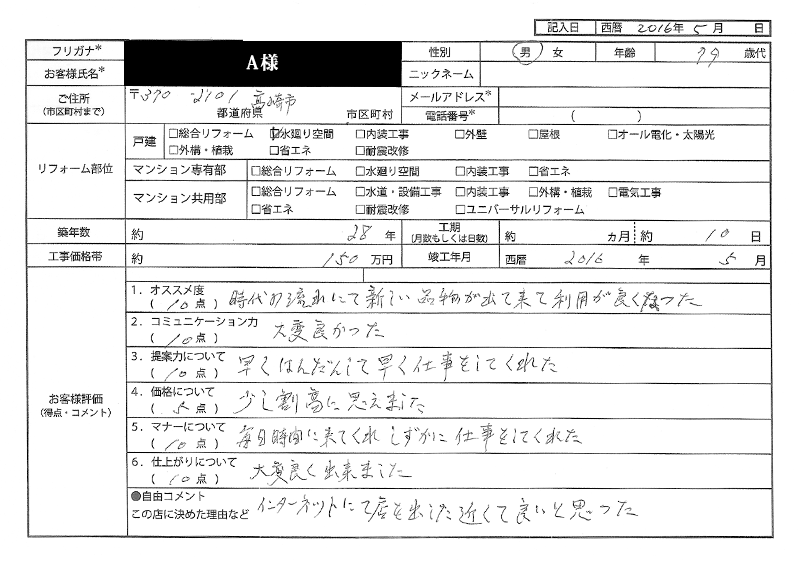 記入日 西暦 2016年 5月 日
フリガナ* A様 性別 男 女 年齢 79 歳代
お客様氏名* ニックネーム
ご住所 〒370 -2101 高崎市 メールアドレス*
(市区町村まで) 都道府県 市区町村 電話番号* ( )
リフォーム部位 戸建 □総合リフォーム □水廻り空間 □内装工事 □外壁 □屋根 □オール電化・太陽光
□外構・植栽 □省エネ □耐震改修
マンション専有部 □総合リフォーム □水廻り空間 □内装工事 □省エネ
マンション共用部 □総合リフォーム □水道・設備工事 □内装工事 □外構・植栽 □電気工事
□省エネ □耐震改修 □ユニバーサルリフォーム
築年数 約 28 年 工期 (月数もしくは日数) 約 ヵ月 約 10 日
工事価格帯 約 150 万円 竣工年月 西暦 2016 年 5 月
お客様評価
(得点・コメント)
1. オススメ度
( 10 点 ) 時代の流れにて新しい品物が出て来て利用が良くなった
2. コミュニケーション力
( 10 点 ) 大変良かった
3. 提案力について
( 10 点 ) 早くはんだんして早く仕事をしてくれた
4. 価格について
( 5 点 ) 少し割高に思えました
5. マナーについて
( 10 点 ) 毎日時間に来てくれ しずかに仕事をしてくれた
6. 仕上がりについて
( 10 点 ) 大変良く出来ました
●自由コメント
この店に決めた理由など インターネットにて店を出した近くて良いと思った